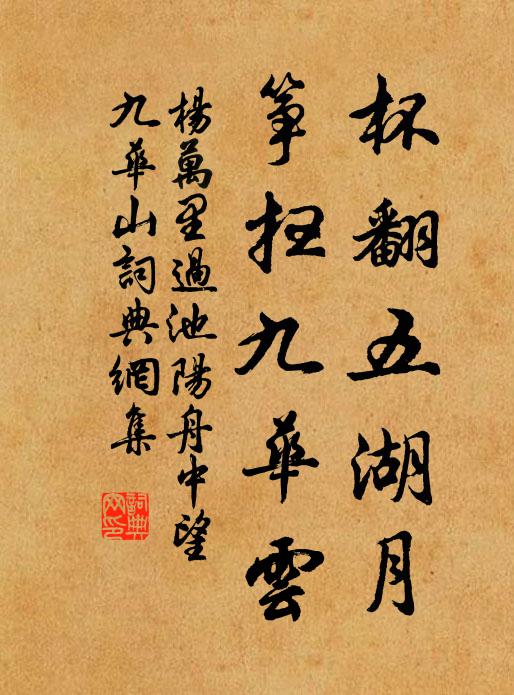 杯翻五湖月
筝扫九華雲
楊萬里過池陽舟中望
九華山詞典網集
詞典
网印